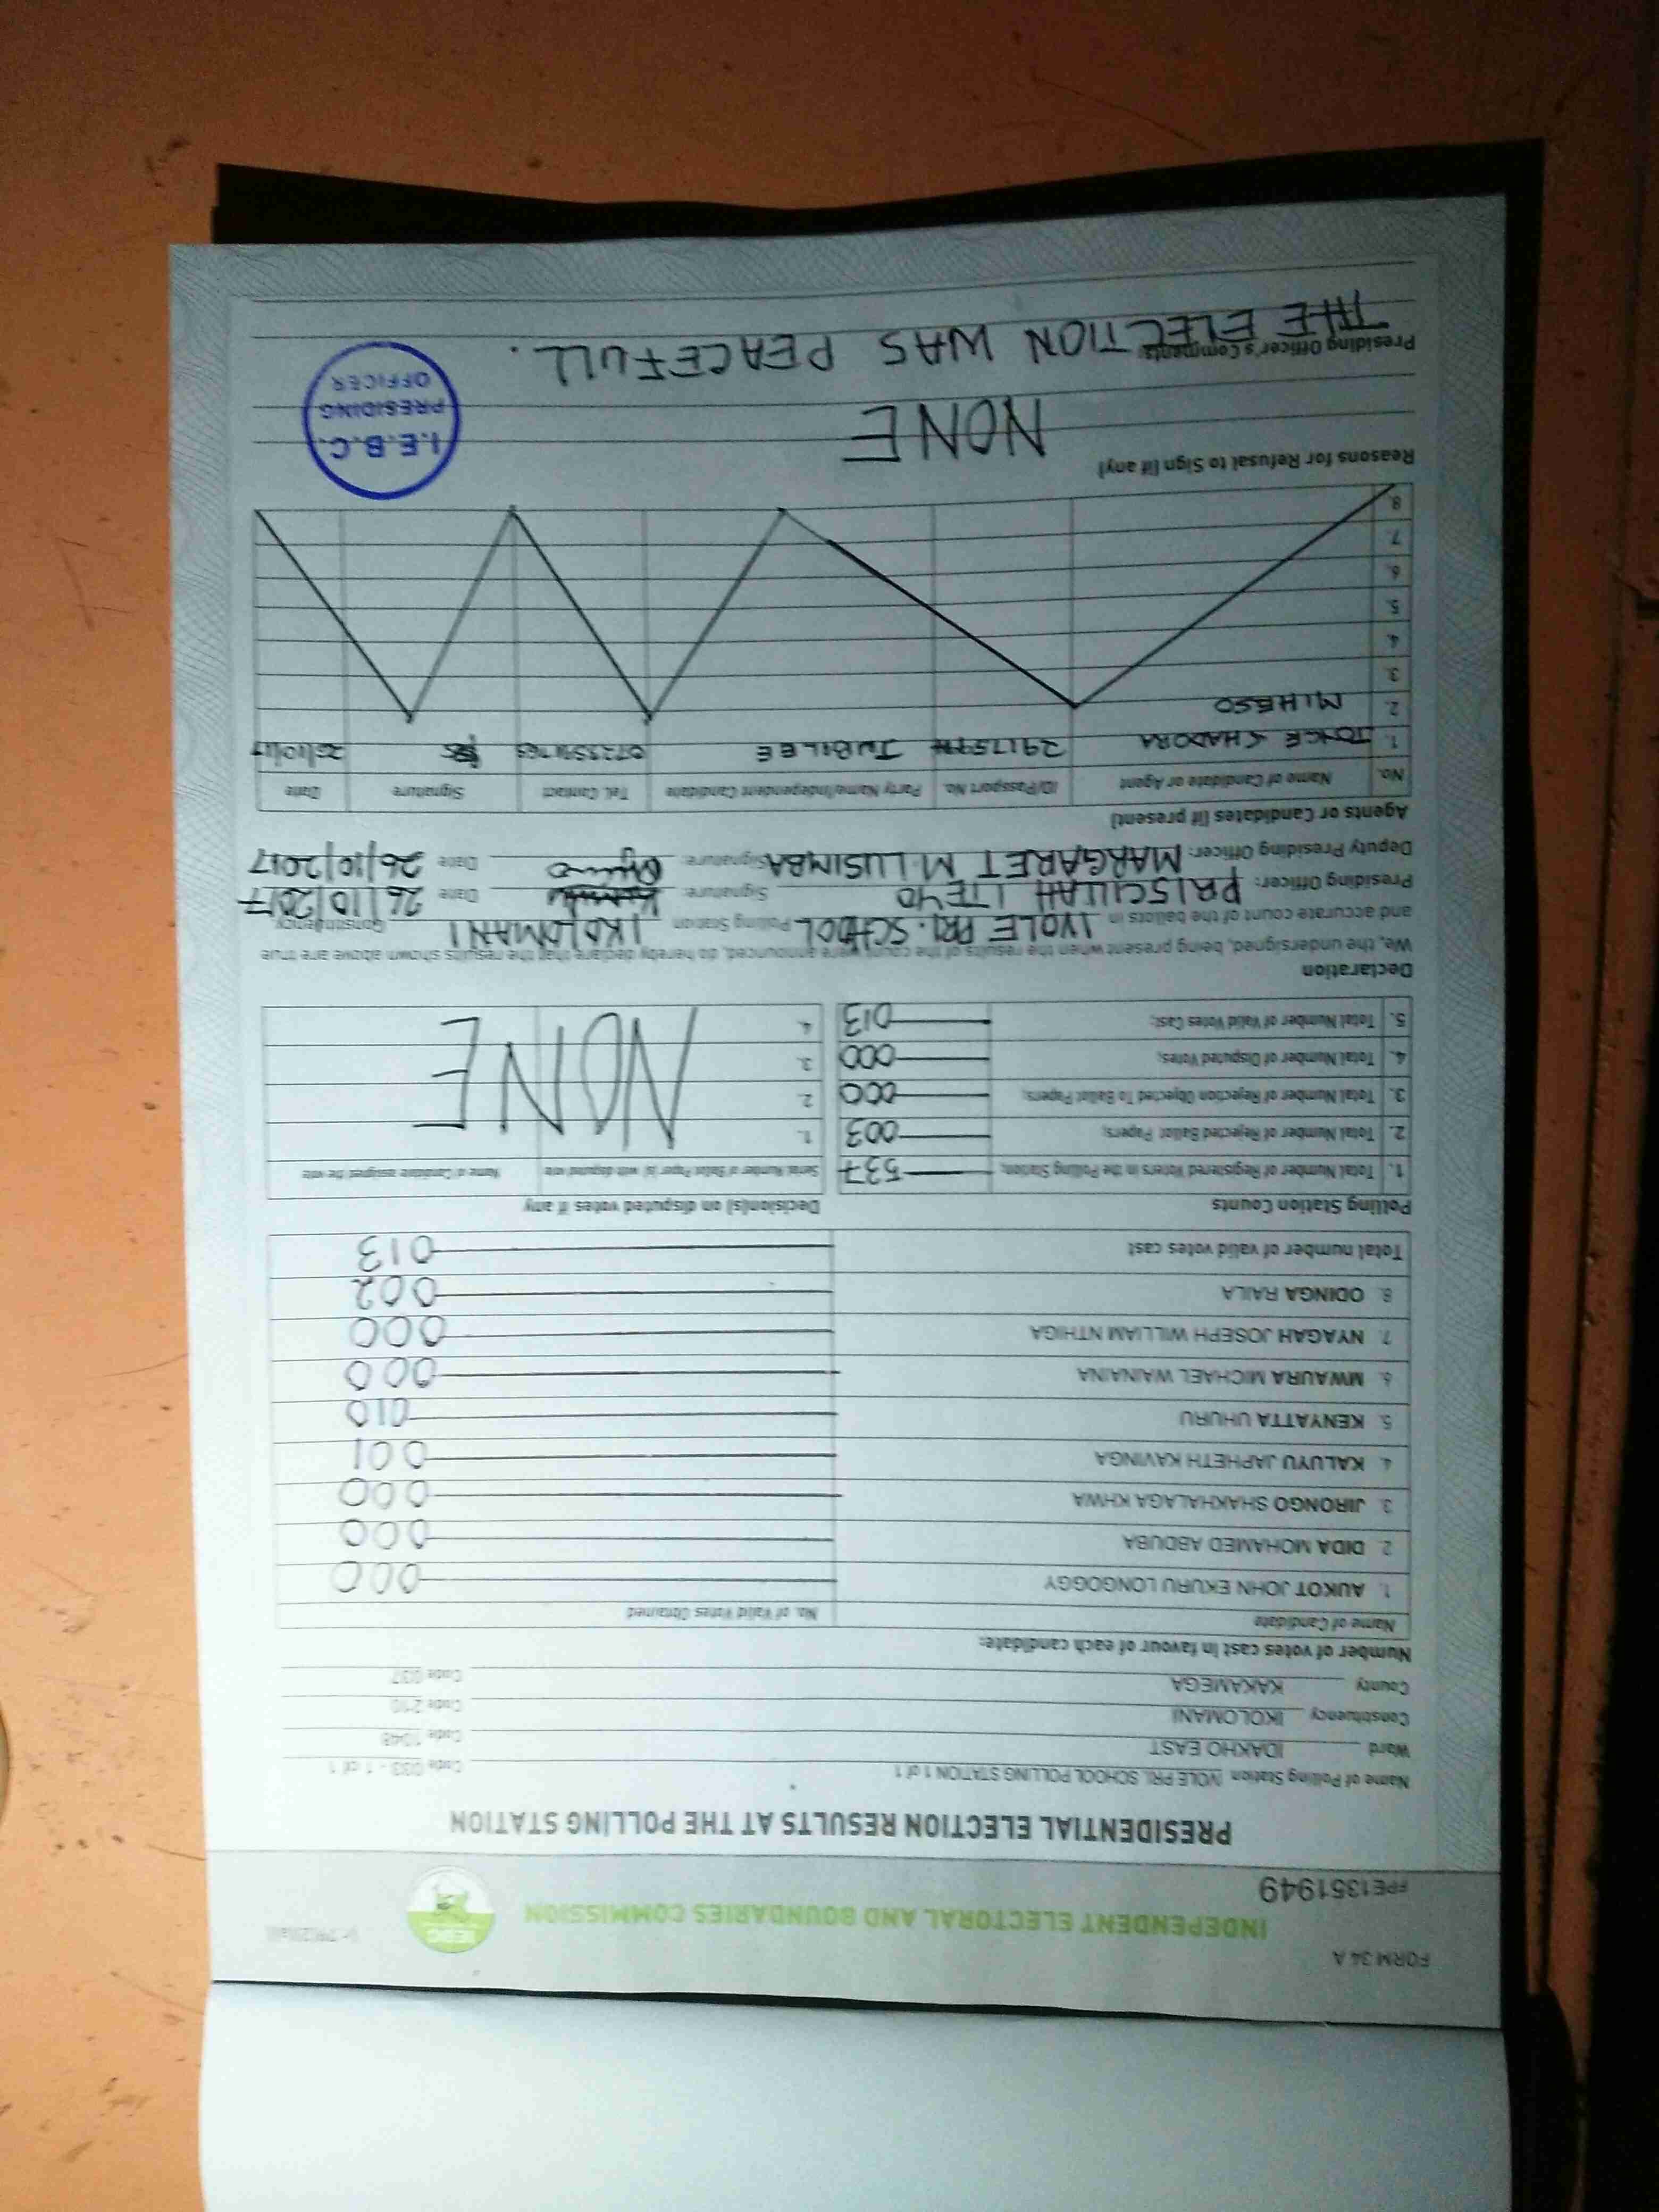 FORM 34 A
INDEPENDENT ELECTORAL AND BOUNDARIES COMMISSION
IEBC
FPE1351949
PRESIDENTIAL ELECTION RESULTS AT THE POLLING STATION
Name of Polling Station IVOLE PRI. SCHOOL POLLING STATION 1 of 1 Code 033 - 1 of 1
Ward IDAKHO EAST Code 1048
Constituency IKOLOMANI Code 210
County KAKAMEGA Code 037
Number of votes cast in favour of each candidate:
Name of Candidate No. of Valid Votes Obtained
1. AUKOT JOHN EKURU LONGOGGY 000
2. DIDA MOHAMED ABDUBA 000
3. JIRONGO SHAKHALAGA KHWA 000
4. KALUYU JAPHETH KAVINGA 001
5. KENYATTA UHURU 010
6. MWAURA MICHAEL WAINAINA 000
7. NYAGAH JOSEPH WILLIAM NTHIGA 000
8. ODINGA RAILA 002
Total number of valid votes cast 013
Polling Station Counts Decision(s) on disputed votes if any
1. Total Number of Registered Voters in the Polling Station; 537
2. Total Number of Rejected Ballot Papers; 003
3. Total Number of Rejection Objected To Ballot Papers; 000
4. Total Number of Disputed Votes; 000
5. Total Number of Valid Votes Cast; 013
Serial Number of Ballot Paper (s) with disputed vote Name of Candidate assigned the vote
1.
2.
3.
4.
NONE
Declaration
We, the undersigned, being present when the results of the count were announced, do hereby declare that the results shown above are true
and accurate count of the ballots in IVOLE PRI. SCHOOL Polling Station IKOLOMANI Constituency
Presiding Officer: PRISCILLAH ITEYO Signature: Date 26/10/2017
Deputy Presiding Officer: MARGARET M. LUSIMBA Signature: Date 26/10/2017
Agents or Candidates (if present)
No. Name of Candidate or Agent ID/Passport No. Party Name/Independent Candidate Tel. Contact Signature Date
1. SHADORA JUBILEE 26/10/17
2. MIHESO
3.
4.
5.
6.
7.
8.
Reasons for Refusal to Sign (if any)
NONE
Presiding Officer's Comments:
THE ELECTION WAS PEACEFULL.
I.E.B.C.
PRESIDING
OFFICER